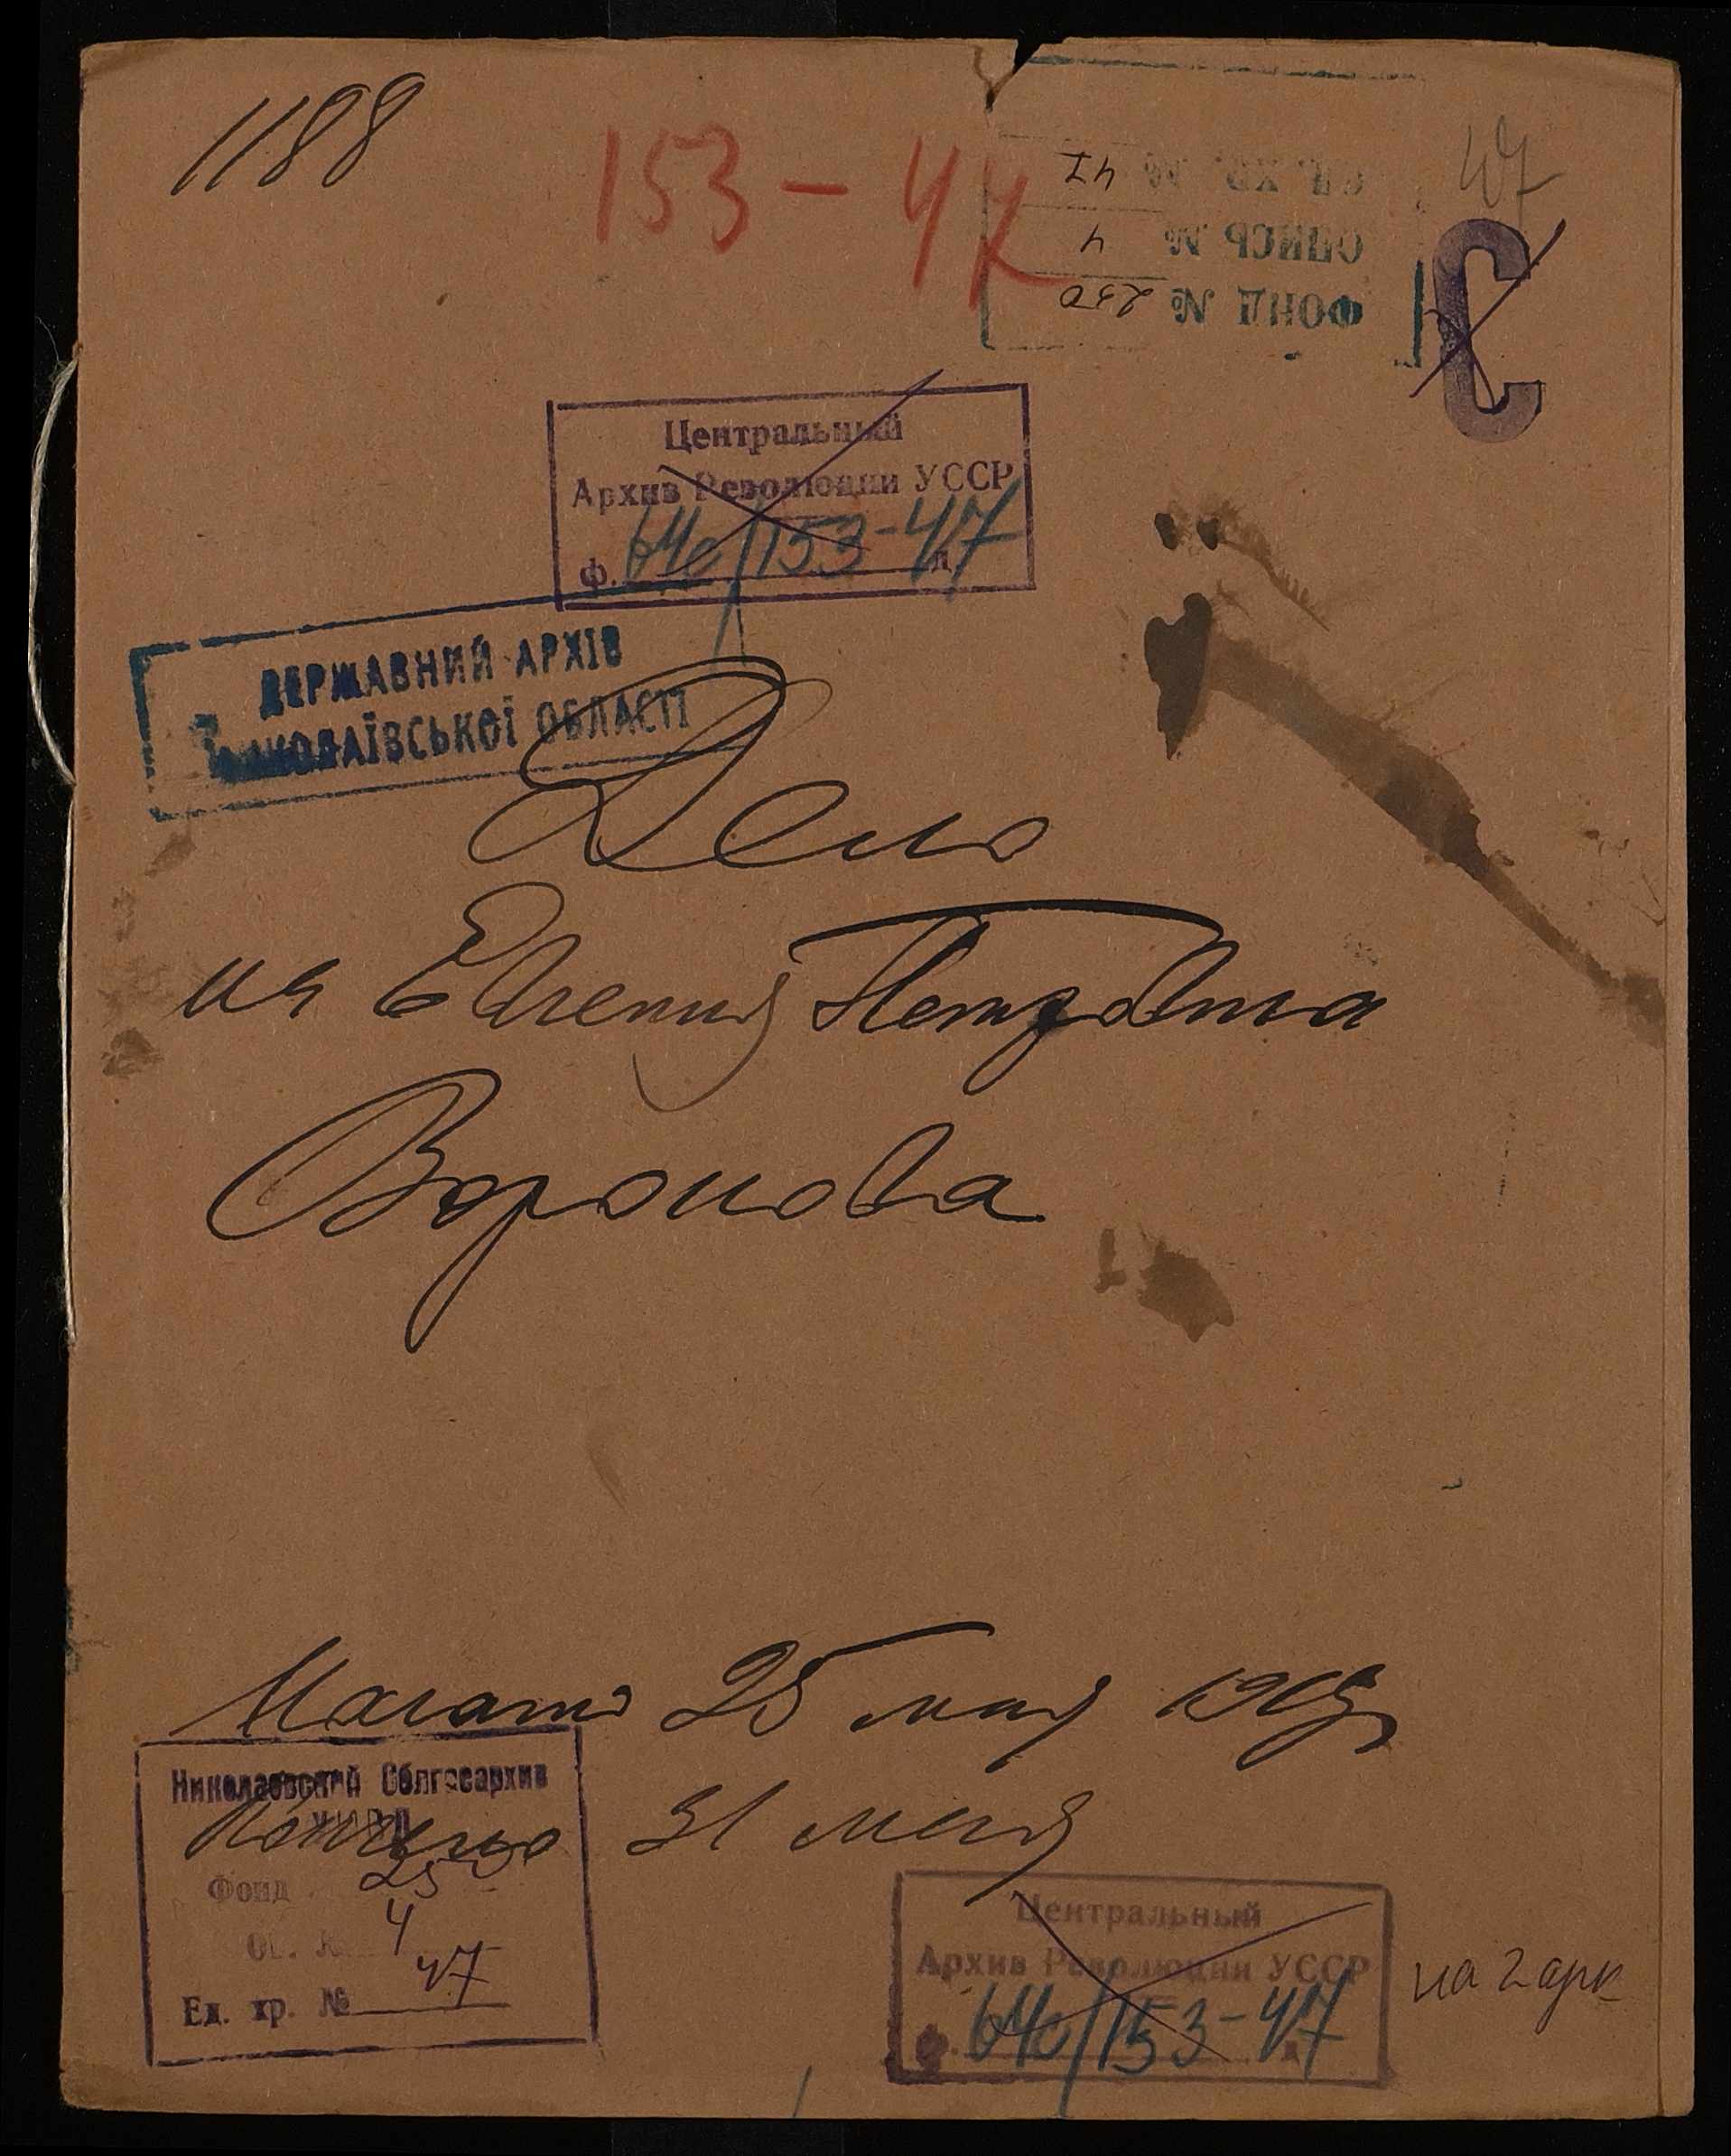 1188
153 – 47
47
Ед. хр. № 47
Опись № 4
ФОНД № 230
С
Центральный
Архив Революции УССР
ф. 64с/153-47 д.
ДЕРЖАВНИЙ АРХІВ
МИКОЛАЇВСЬКОЇ ОБЛАСТІ
Дело
на Евгения Петровича
Воронова
Начато 25 мая
Николаевский Облгосархив
Кончено 31 мая
Фонд 230
Оп. № 4
Ед. хр. № 47
Центральный
Архив Революции УССР
ф. 64с/153-47 д.
на 2 арк